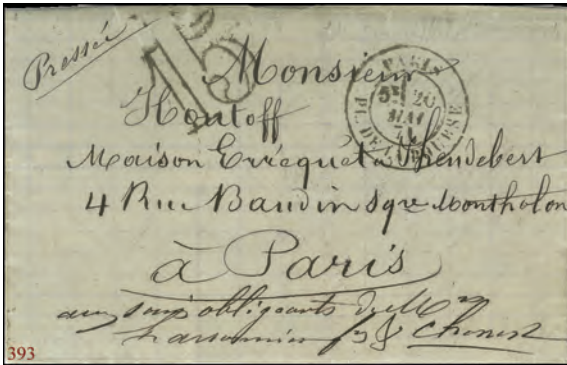 Pressée
15
PARIS
5E 20
MAI
71
PL. DE LA BOURSE
Monsieur
Houtoff
Maison
4 Rue Baudin Sqre Montholon
à Paris
aux soins obligeants de Mr
393